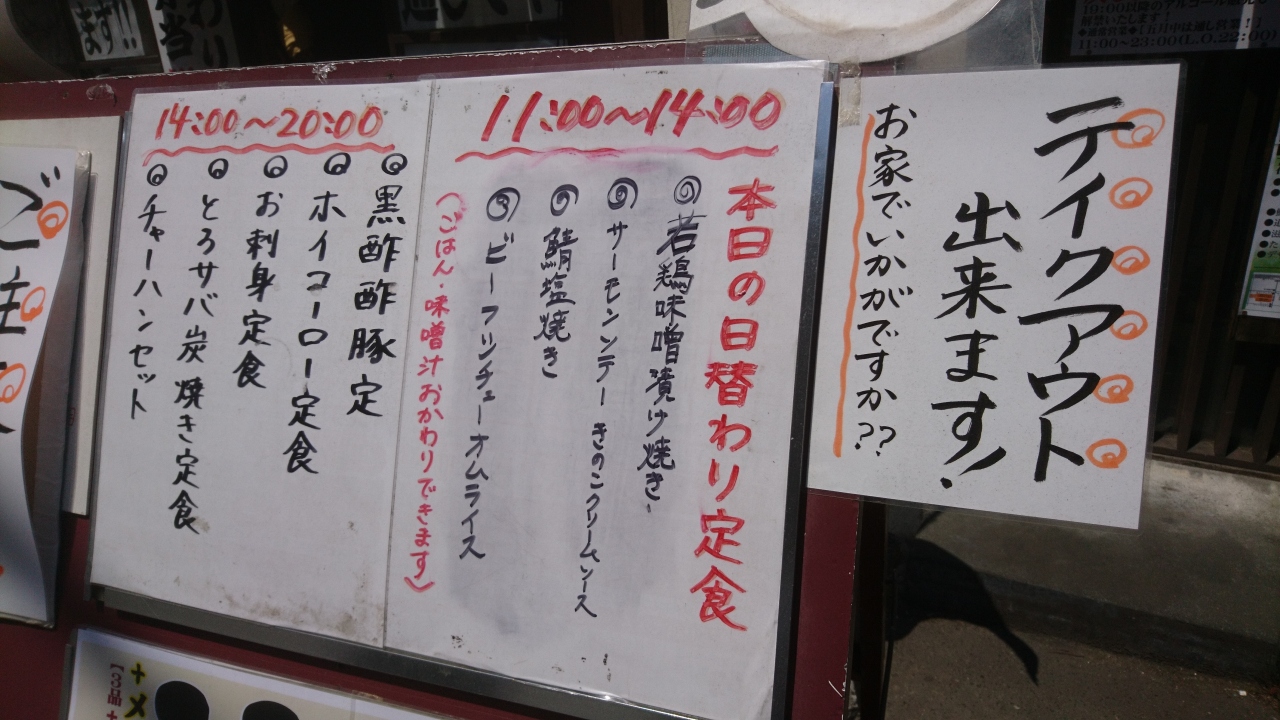 テイクアウト
出来ます!
お家でいかがですか??
11:00〜14:00
本日の日替わり定食
若鶏味噌漬け焼き
サーモンソテー きのこクリームソース
鯖塩焼き
ビーフシチューオムライス
(ごはん・味噌汁おかわりできます)
14:00〜20:00
黒酢酢豚定
ホイコーロー定食
お刺身定食
とろサバ炭焼き定食
チャーハンセット
ます!!
11:00〜23:00(L.O.22:00)
[3品+
+メ